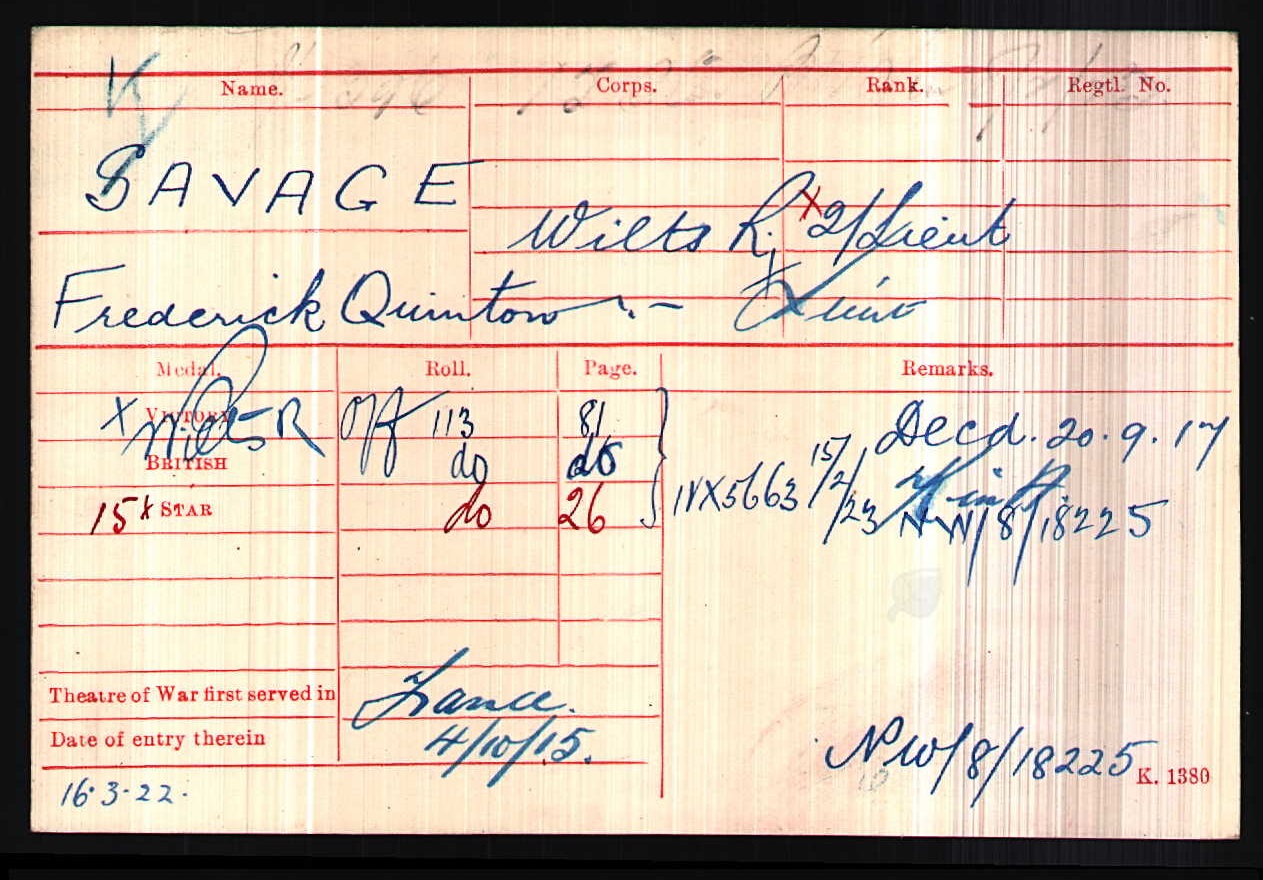 Name. Corps. Rank. Regtl. No.
SAVAGE
Wilts R. X 2/Lieut
Frederick Quinton Lieut
Medal. Roll. Page. Remarks.
X VICTORY Wilts R Off 113 81 Decd. 20.9.17
BRITISH do do
15 STAR do 26 IVX5663 15/2/23 NW/8/18225
Theatre of War first served in France.
Date of entry therein 4/10/15.
NW/8/18225 K. 1380
16.3.22.